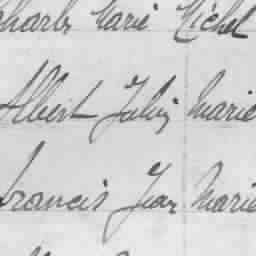 Charles Marie Michel
Albert Jules Marie
Francis Jean Marie